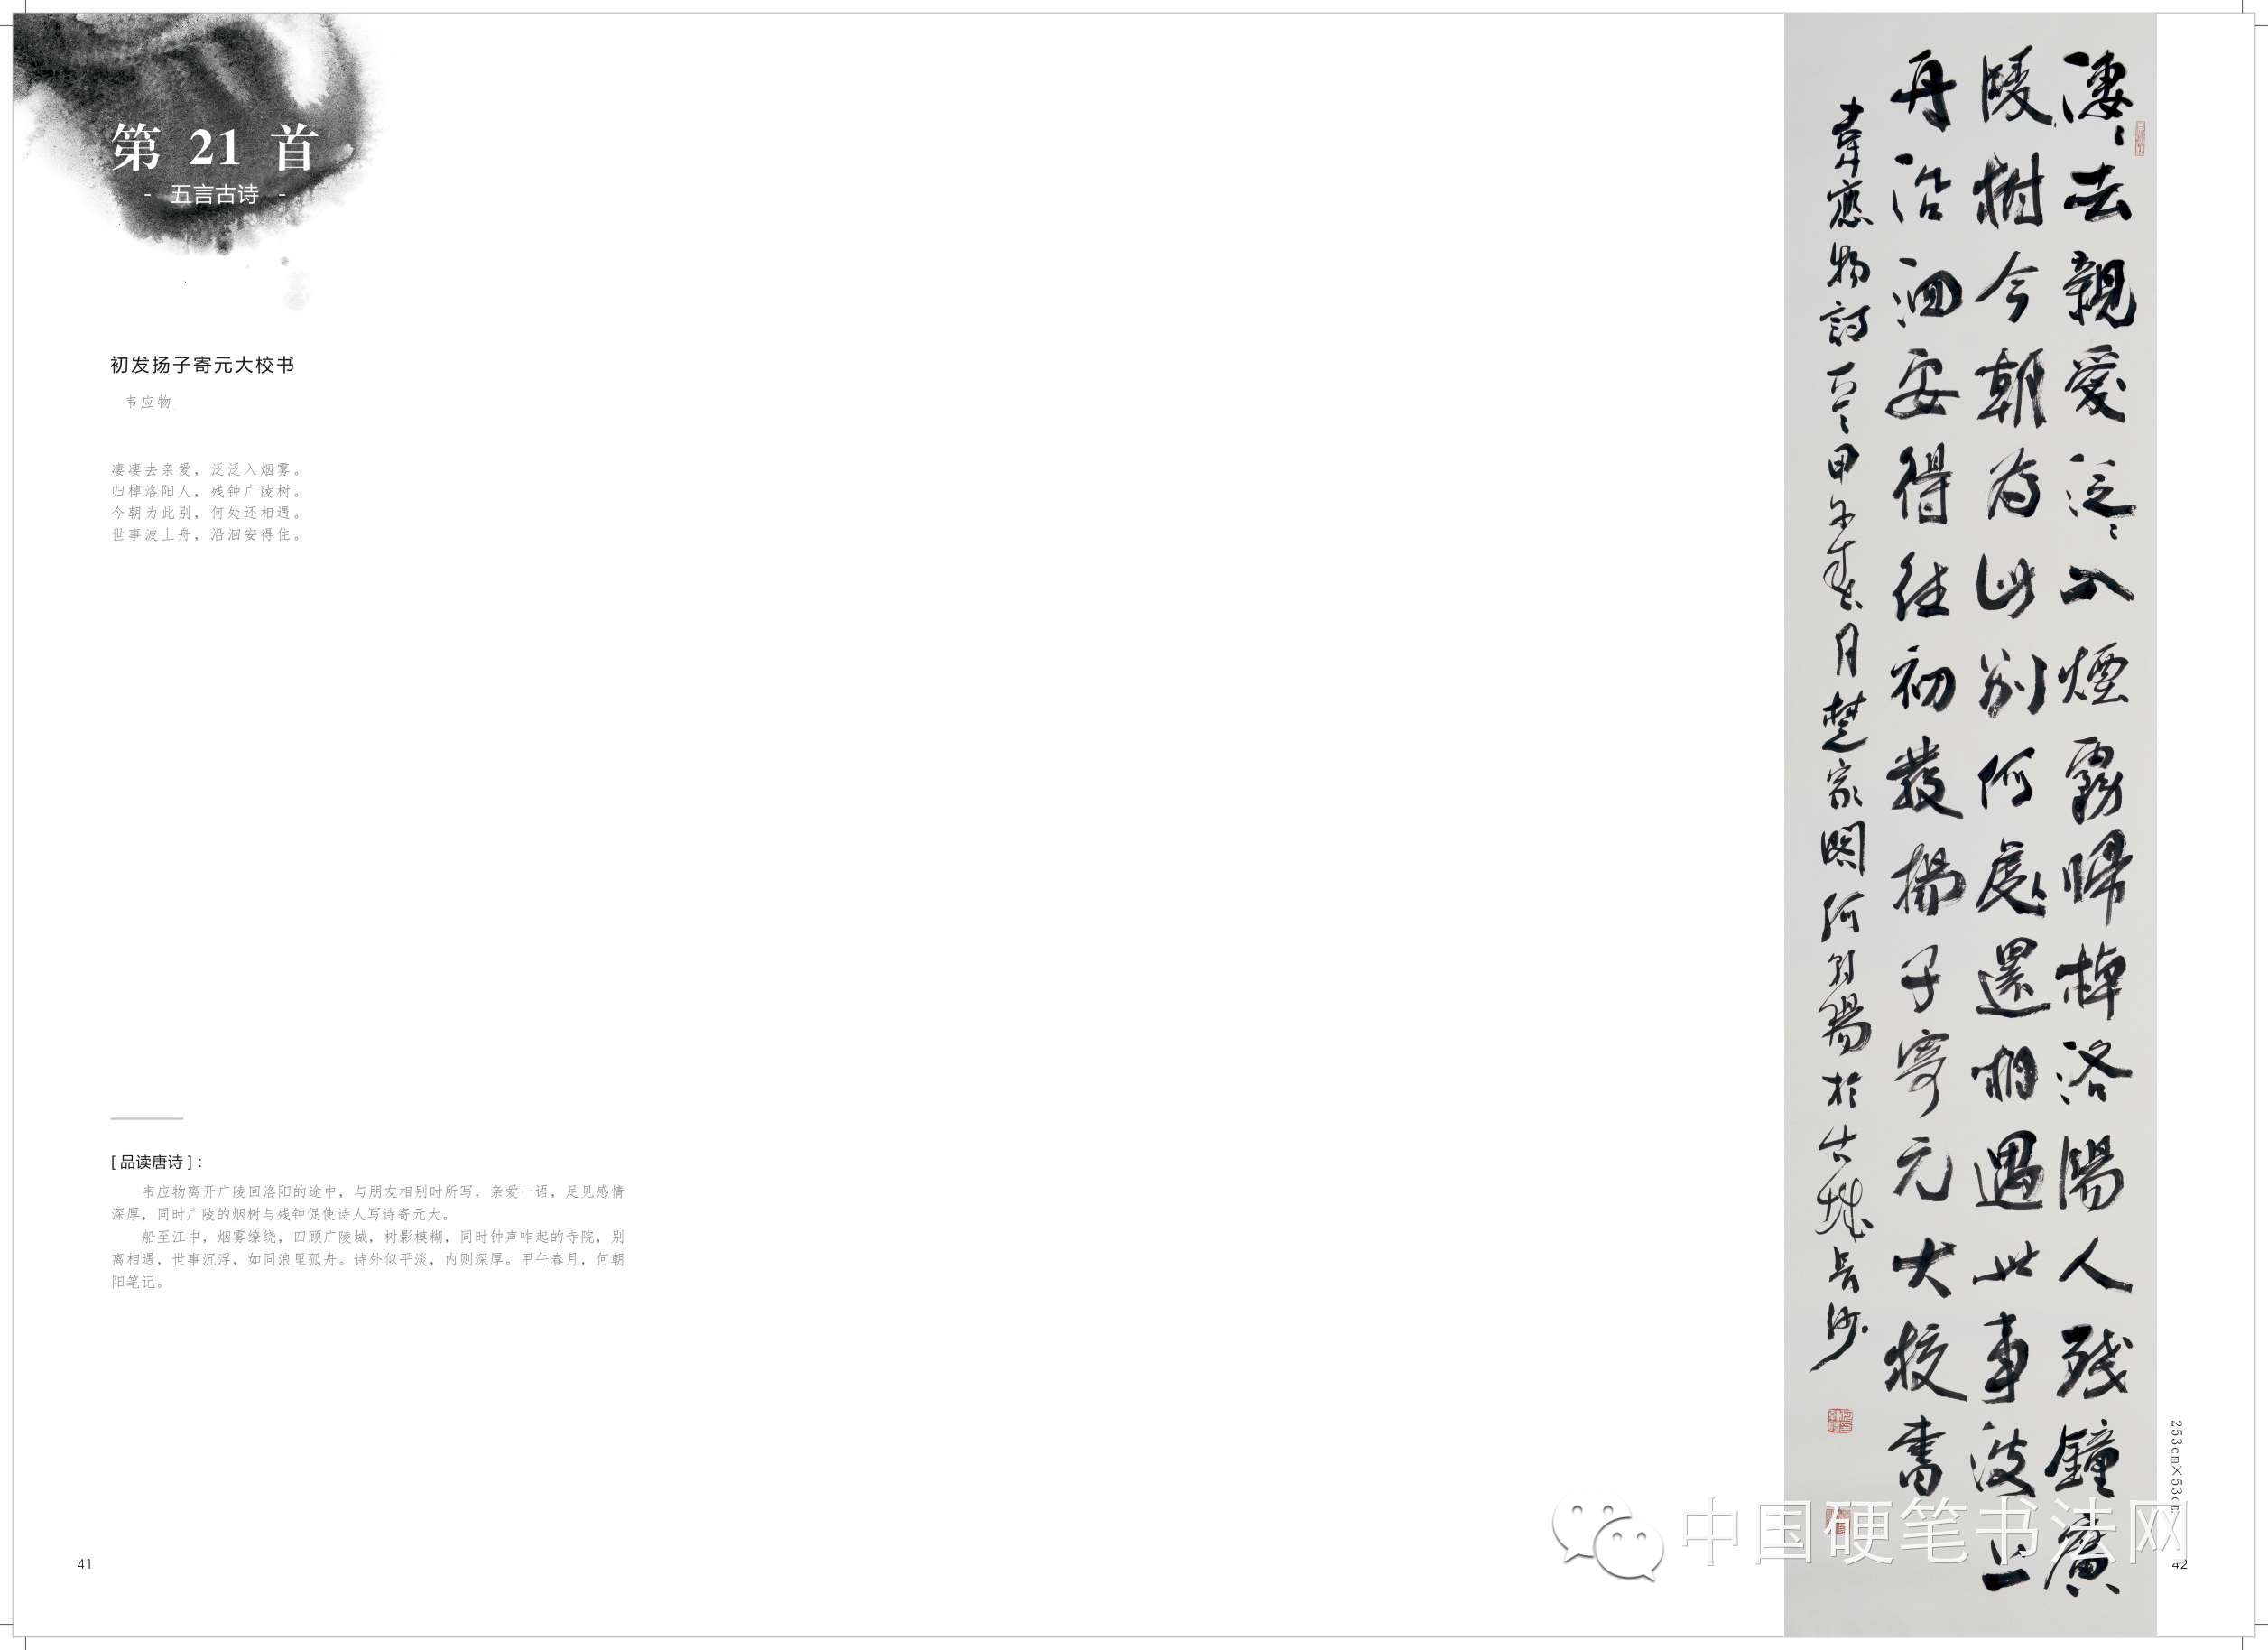 第 21 首
- 五言古诗 -
初发扬子寄元大校书
韦应物
凄凄去亲爱，泛泛入烟雾。
归棹洛阳人，残钟广陵树。
今朝为此别，何处还相遇。
世事波上舟，沿洄安得住。
[ 品读唐诗 ]：
韦应物离开广陵回洛阳的途中，与朋友相别时所写，亲爱一语，足见感情
深厚，同时广陵的烟树与残钟促使诗人写诗寄元大。
船至江中，烟雾缭绕，四顾广陵城，树影模糊，同时钟声咋起的寺院，别
离相遇，世事沉浮，如同浪里孤舟。诗外似平淡，内则深厚。甲午春月，何朝
阳笔记。
41
凄〻去親愛泛〻入煙霧歸棹洛陽人殘鐘廣
陵樹今朝為此別何處還相遇世事波上
舟沿洄安得住初發揚子寄元大校書
韋應物詩一首甲午春月楚家閣何朝陽於古城長沙
253cm×53cm
中国硬笔书法网
42